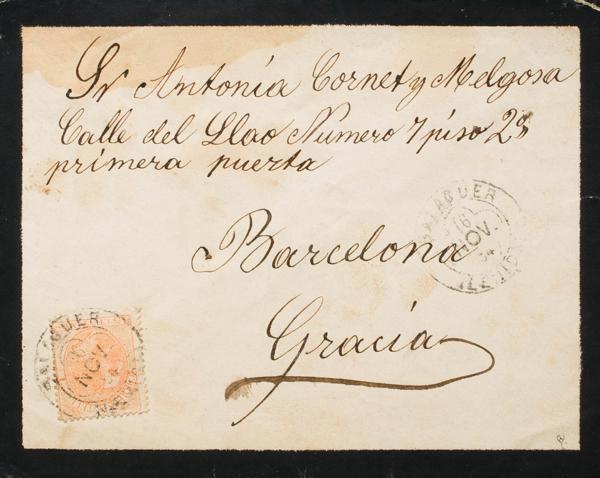 Sr Antonia Cornet y Melgosa
Calle del Llao Número 7 piso 2º
primera puerta
Barcelona
Gracia
BALAGUER
16
NOV.
(LERIDA)
BALAGUER
NOV